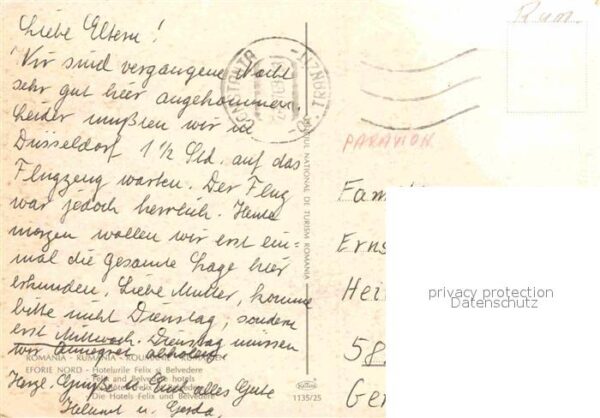 Liebe Eltern!
Wir sind vergangene Nacht
sehr gut hier angekommen,
Leider mußten wir in
Düsseldorf 1 1/2 Std. auf das
Flugzeug warten. Der Flug
war jedoch herrlich. Heute
morgen wollen wir erst ein=
mal die gesamte Lage hier
erkunden. Liebe Mutter, komme
bitte nicht Dienstag, sondern
erst Mittwoch. Dienstag müssen
wir Annegret abholen.
Herzl. Grüße u. Euch alles Gute
Helmut u. Gerda.
ROMANIA - RUMANIA
EFORIE NORD - Hotelurile Felix si Belvedere
Felix and Belvedere hotels
Die Hotels Felix und Belvedere
NATIONAL DE TURISM ROMANIA
1135/25
CONSTANTA
PARAVION
Fam
Erns
Hei
58
Ger
privacy protection
Datenschutz